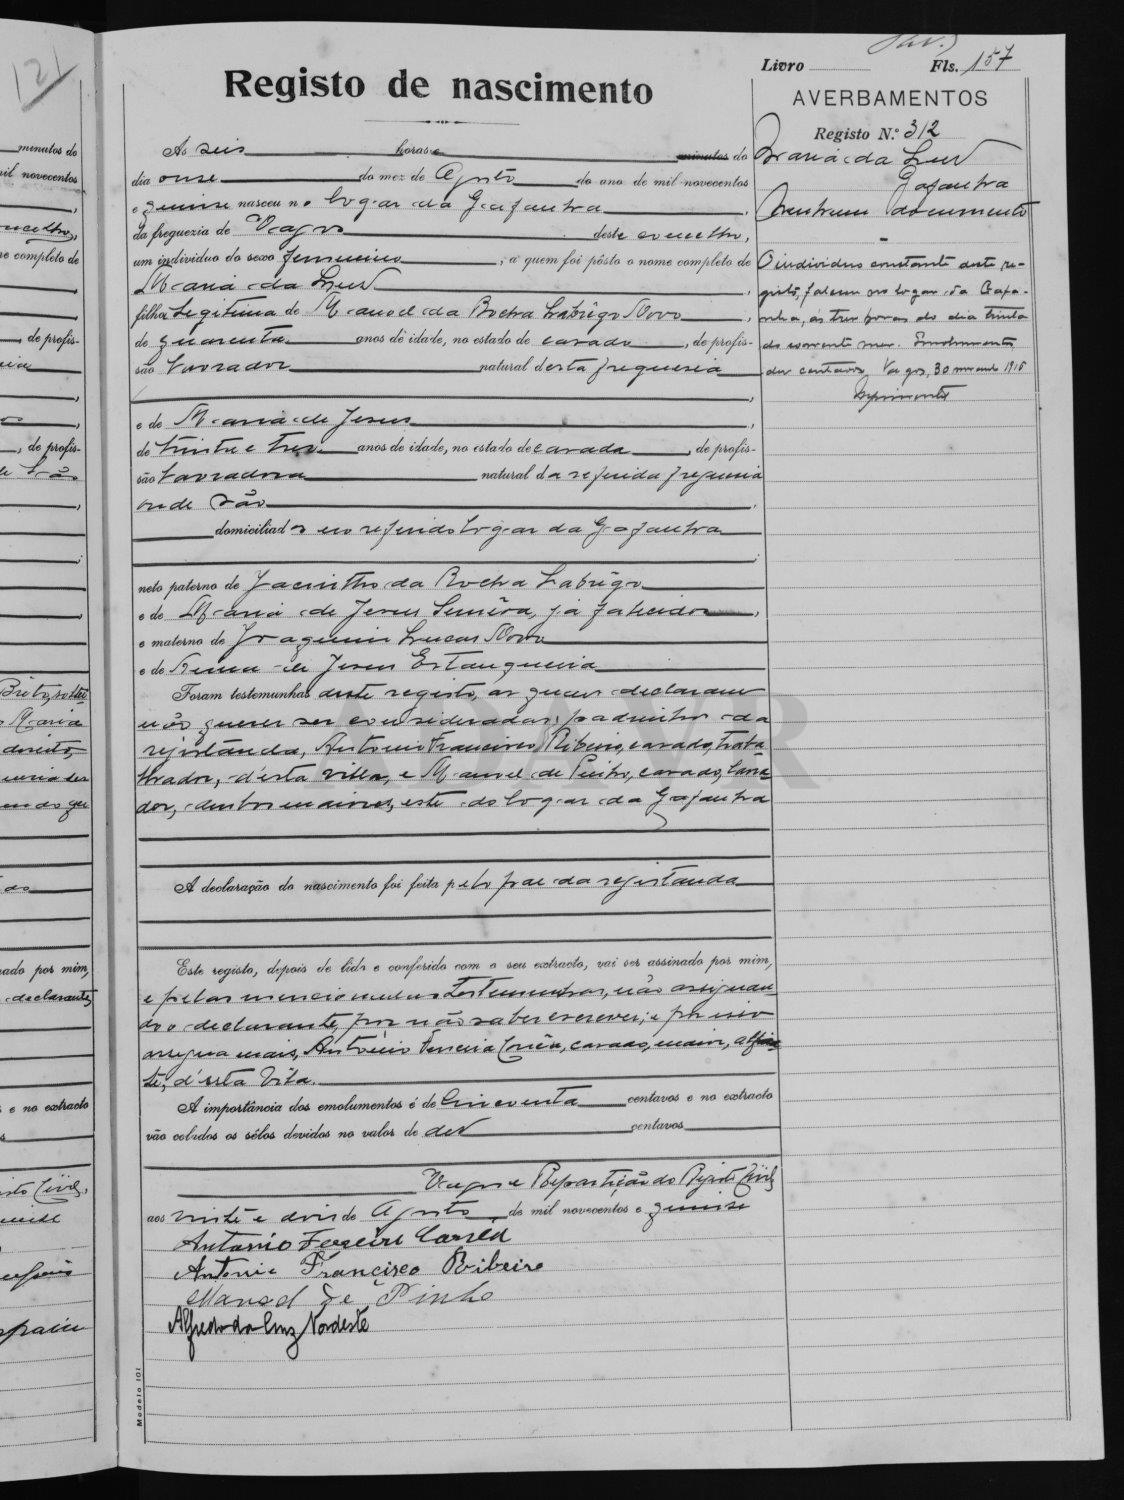 121
minutos do
mil novecentos
concelho,
me completo de
, de profis-
, de profis-
de São
declarantes
ado por mim,
s e no extracto
Registo de nascimento
Livro Fls. 157
AVERBAMENTOS
Registo N.º 312
Maria da Luz
Gafanha
Nenhum documento
O individuo constante deste re-
gisto, faleceu no logar da Gafa-
nha, ás tres horas do dia trinta
do corrente mez. Emolumentos
dez centavos. Vagos, 30
Ás seis horas e minutos do
dia onze do mez de Agosto do ano de mil novecentos
e quinze nasceu no logar da Gafanha,
da freguezia de Vagos deste concelho,
um individuo do sexo femenino, a quem foi pôsto o nome completo de
Maria da Luz,
filha legitima de Manoel da Rocha Labrêgo Novo,
de quarenta anos de idade, no estado de casado, de profis-
são lavrador natural desta freguesia,
e de Maria de Jesus,
de trinta e tres anos de idade, no estado de casada, de profis-
são lavradora natural da referida freguesia
onde são,
domiciliados no referido logar da Gafanha;
neto paterno de Jacintho da Rocha Labrêgo
e de Maria de Jesus, já falecidos,
e materno de Joaquim Lucas Novo
e de Rosa de Jesus Estanqueira
Foram testemunhas deste registo, as quaes declaram
não querer ser consideradas padrinhos da
registanda, Antonio Francisco Ribeiro, casado, traba-
lhador, d'esta villa, e Manoel de Pinho, casado, lavra-
dor, ambos maiores, este do logar da Gafanha
A declaração do nascimento foi feita pelo pae da registanda
Este registo, depois de lido e conferido com o seu extracto, vai ser assinado por mim,
e pelas mencionadas testemunhas, não assignan-
do o declarante, por não saber escrever; e por isso
assigna mais, António Ferreira Corrêa, casado, maior, alfaia-
te, d'esta Vila.
A importância dos emolumentos é de cincoenta centavos e no extracto
vão colados os sêlos devidos no valor de dez centavos
Vagos e Repartição do Registo Civil,
aos vinte e dois de Agosto de mil novecentos e quinze
Antonio Ferreira Corrêa
Antonio Francisco Ribeiro
Manoel de Pinho
Alfredo da Cruz Nordeste
ADAVR
Modelo 101